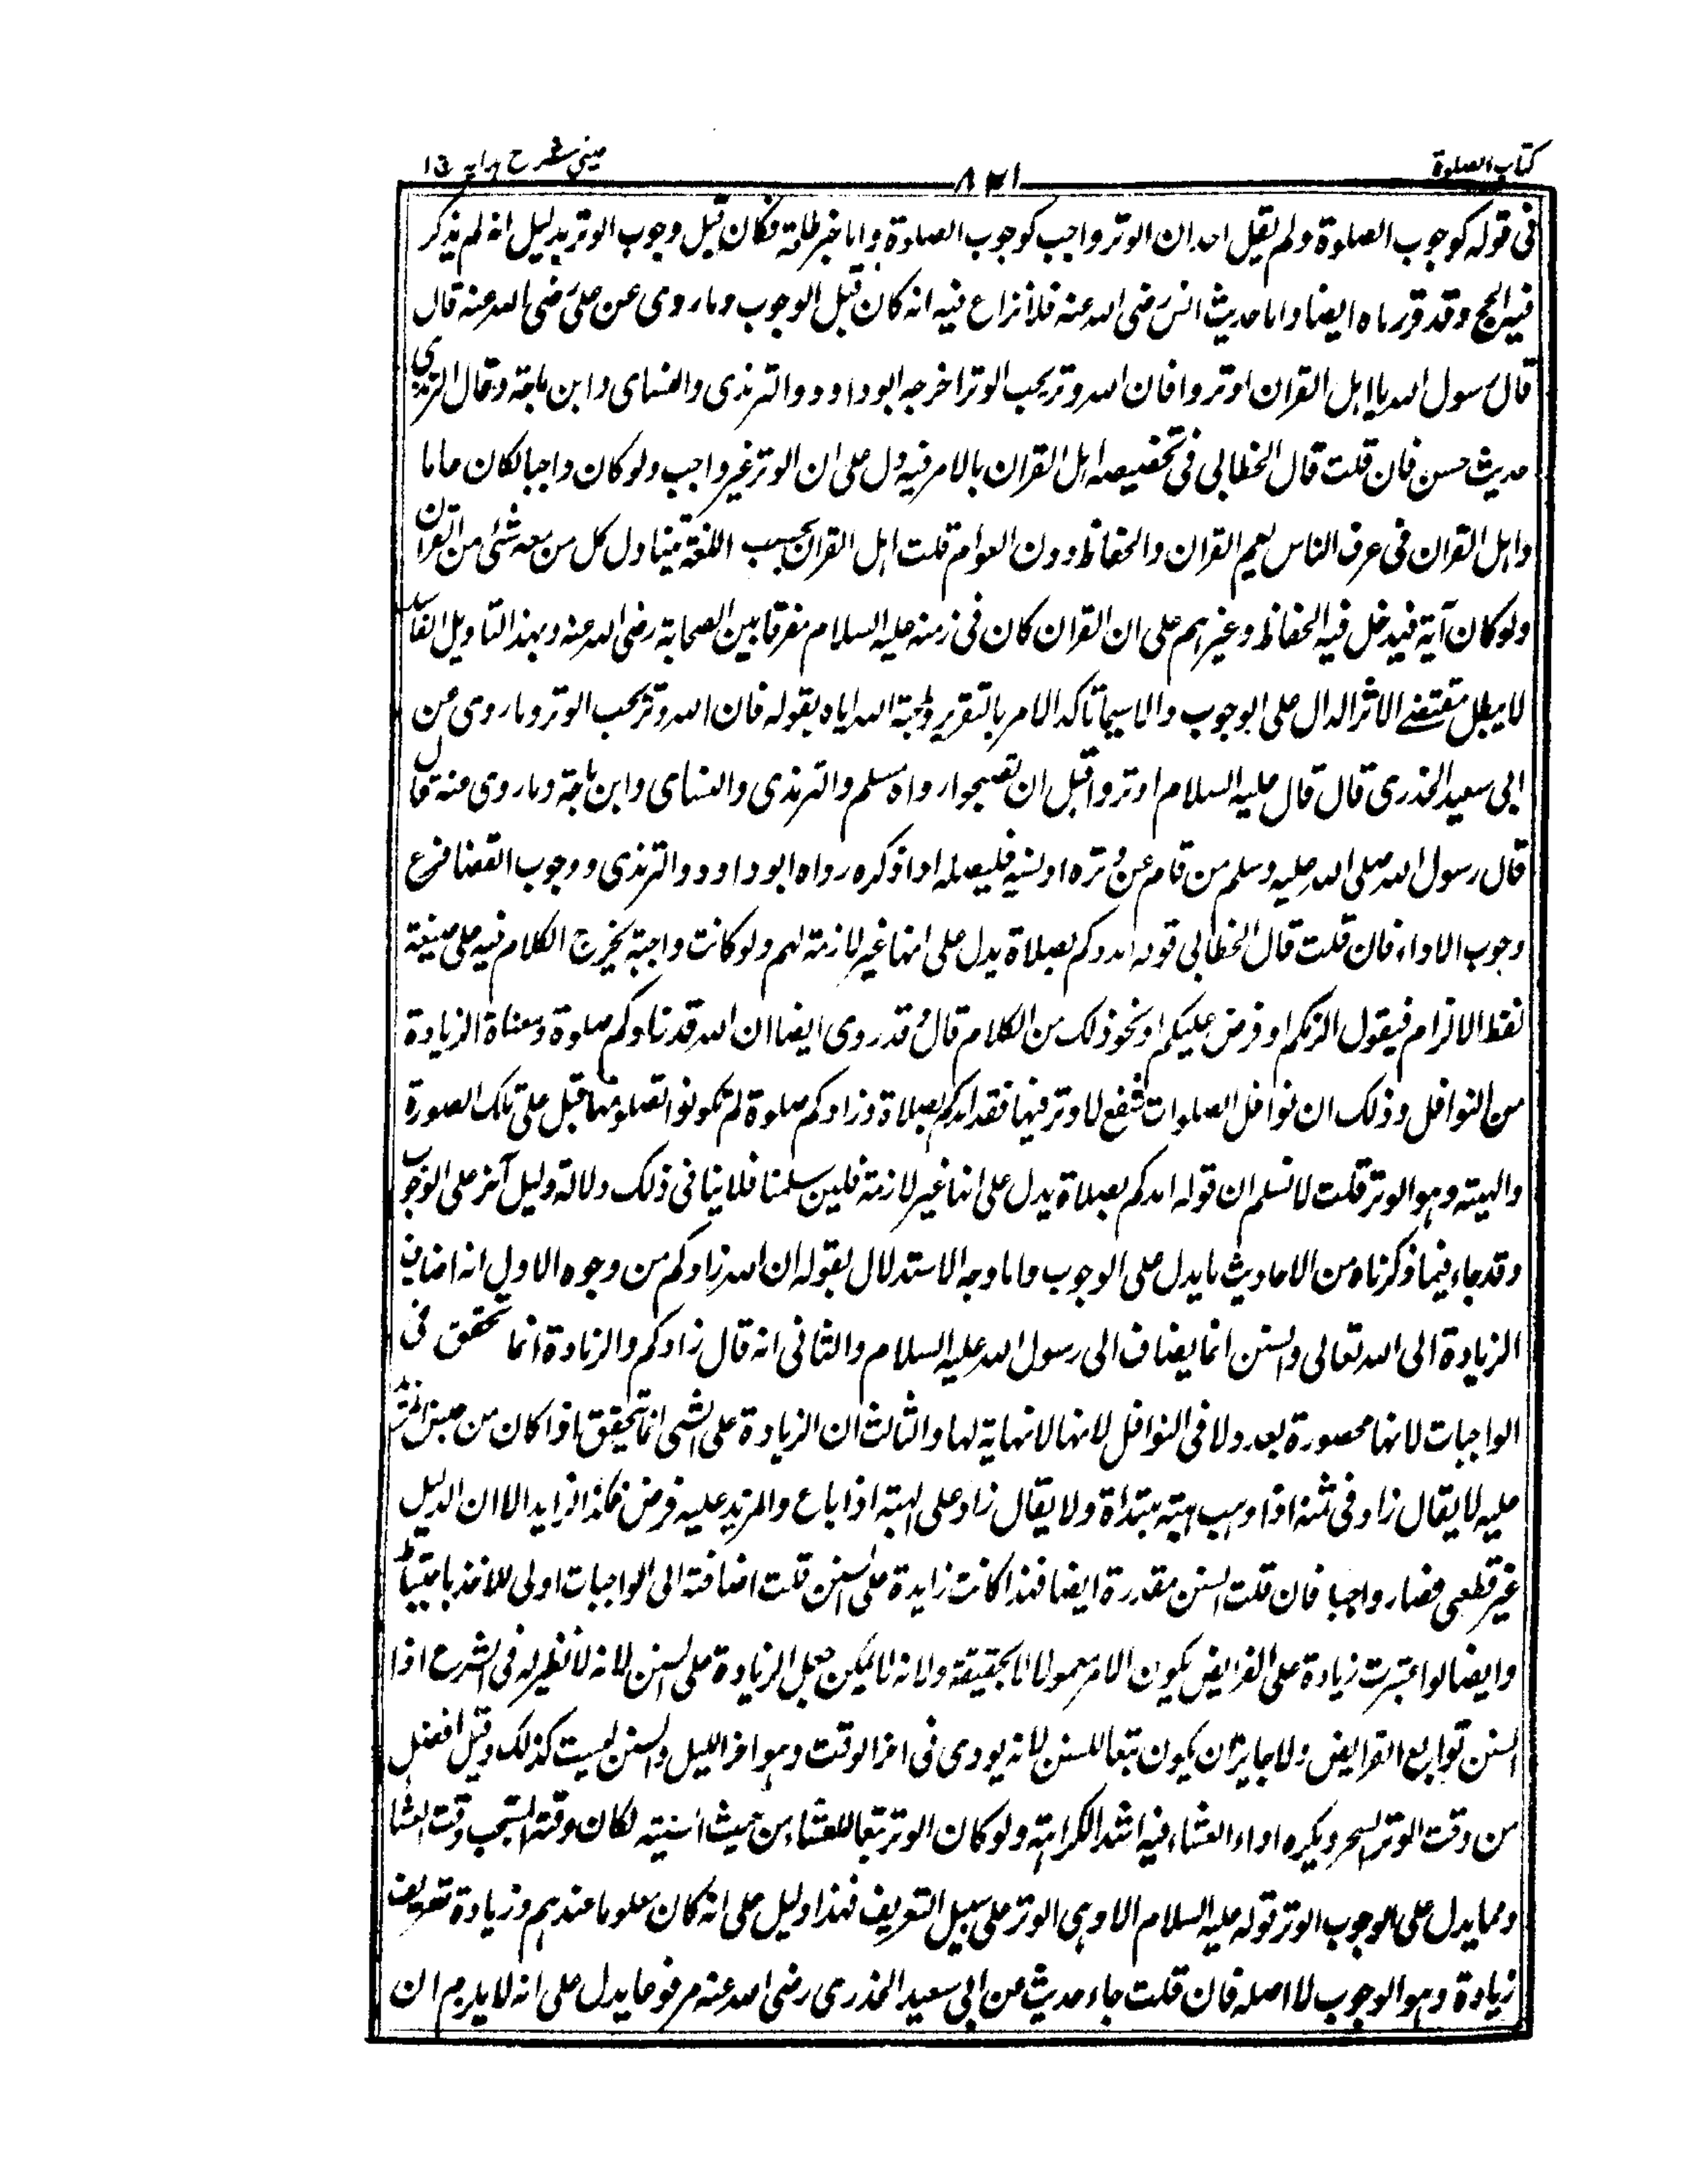 كتاب الصلوة
٨٢١
عيني شرح هدايه ج١
فى قوله كوجوب الصلوة ولم يقل احد ان الوتر واجب كوجوب الصلوة واما خبر طلحة فكان قبل وجوب الوتر بدليل انه لم يذكر
فيه الحج وقد قررناه ايضا واما حديث انس رضى الله عنه فلا نزاع فيه انه كان قبل الوجوب وما روى عن على رضى الله عنه قال
قال رسول الله يا اهل القران اوتروا فان الله وتر يحب الوتر اخرجه ابو داود والترمذى والنساى وابن ماجة وقال الترمذي
حديث حسن فان قلت قال الخطابى فى تخصيصه اهل القران بالامر فيه دل على ان الوتر غير واجب ولو كان واجبا لكان عاما
واهل القران فى عرف الناس لعيم القران والحفاظ دون العوام قلت اهل القران بحسب اللغة يتناول كل من معه شئ من القران
ولو كان آية فيدخل فيه الحفاظ وغيرهم على ان القران كان فى زمنه عليه السلام مفرقا بين الصحابة رضى الله عنه وبهذا التاويل الفاسد
لا يبطل مقتضے الاثر الدال على الوجوب والاسيما تاكد الامر بالتقرير ومحبة الله اياه بقوله فان الله وتر يحب الوتر وما روى عن
ابى سعيد الخدرى قال قال عليه السلام اوتروا قبل ان تصبحوا رواه مسلم والترمذى والنساى وابن ماجة وما روى عنه قال
قال رسول الله صلى الله عليه وسلم من قام عن وتره او نسيه فليصله اذا ذكره رواه ابو داود والترمذى ووجوب القضا فرع
وجوب الاداء فان قلت قال الخطابى قوله امدكم بصلاة يدل على انها غير لازمة لهم ولو كانت واجبة يخرج الكلام فيه على صيغة
لفظ الالزام فيقول الزمكم او فرض عليكم او نحو ذلك من الكلام قال وقد روى ايضا ان الله قد زادكم صلوة ومعناة الزيادة
من النوافل وذلك ان نوافل الصلوات شفع لا وتر فيها فقد امدكم بصلاة وزادكم صلوة لم تكونوا تصلونها قبل على تلك الصورة
والهيته وهو الوتر قلت لا نسلم ان قوله امدكم بصلاة يدل على انها غير لازمة فلين سلمنا فلا ينافى ذلك دلالة دليل آخر على الوجوب
وقد جاء فيما ذكرناه من الاحاديث ما يدل على الوجوب واما وجه الاستدلال بقوله ان الله زادكم من وجوه الاول انه اضاف
الزيادة الى الله تعالى والسنن انما يضاف الى رسول الله عليه السلام والثانى انه قال زادكم والزيادة انما تحقق فى
الواجبات لانها محصورة بعدد لا فى النوافل لانها لا نهاية لها والثالث ان الزيادة على الشى انما يتحقق اذا كان من جنس المزيد
عليه لا يقال زاد فى ثمنه اذا وهب هبته مبتداة ولا يقال زاد على الهبته اذا باع والمزيد عليه فرض فكذا الزايد الا ان الدليل
غير قطعى فصار واجبا فان قلت السنن مقدرة ايضا فهذا كانت زايدة على السنن قلت اضافته الى الواجبات اولى للاخذ باحتياط
وايضا لو اعتبرت زيادة على الفرايض يكون الامر معمولا لا بحقيقته ولانه لا يمكن جعل الزيادة على السنن لانه لا نظير له فى الشرع اذا
السنن توابع الفرايض ولا جايز ان يكون تبعا للسنن لانه يودى فى اخر الوقت وهو اخر الليل والسنن ليست كذلك وقيل افضل
من وقت الوتر السحر ويكره اداء العشاء فيه اشد الكراهته ولو كان الوتر تبعا للعشاء من حيث السنية لكان وقته المستحب وقت العشا
ومما يدل على الوجوب الوتر قوله عليه السلام الا وهى الوتر على سبيل التعريف فهذا دليل على انه كان معلوما عندهم وزيادة تعريف
زيادة وهو الوجوب لا اصله فان قلت جاء حديث عن ابى سعيد الخدرى رضى الله عنه مرفوعا يدل على انه لا يلزم ان